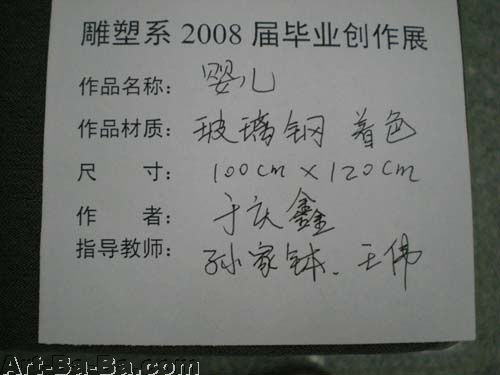 雕塑系 2008 届毕业创作展
作品名称： 婴儿
作品材质： 玻璃钢 着色
尺 寸： 100cm × 120cm
作 者： 于庆鑫
指导教师： 孙家钵、王伟
Art-Ba-Ba.com
Art-Ba-Ba.com